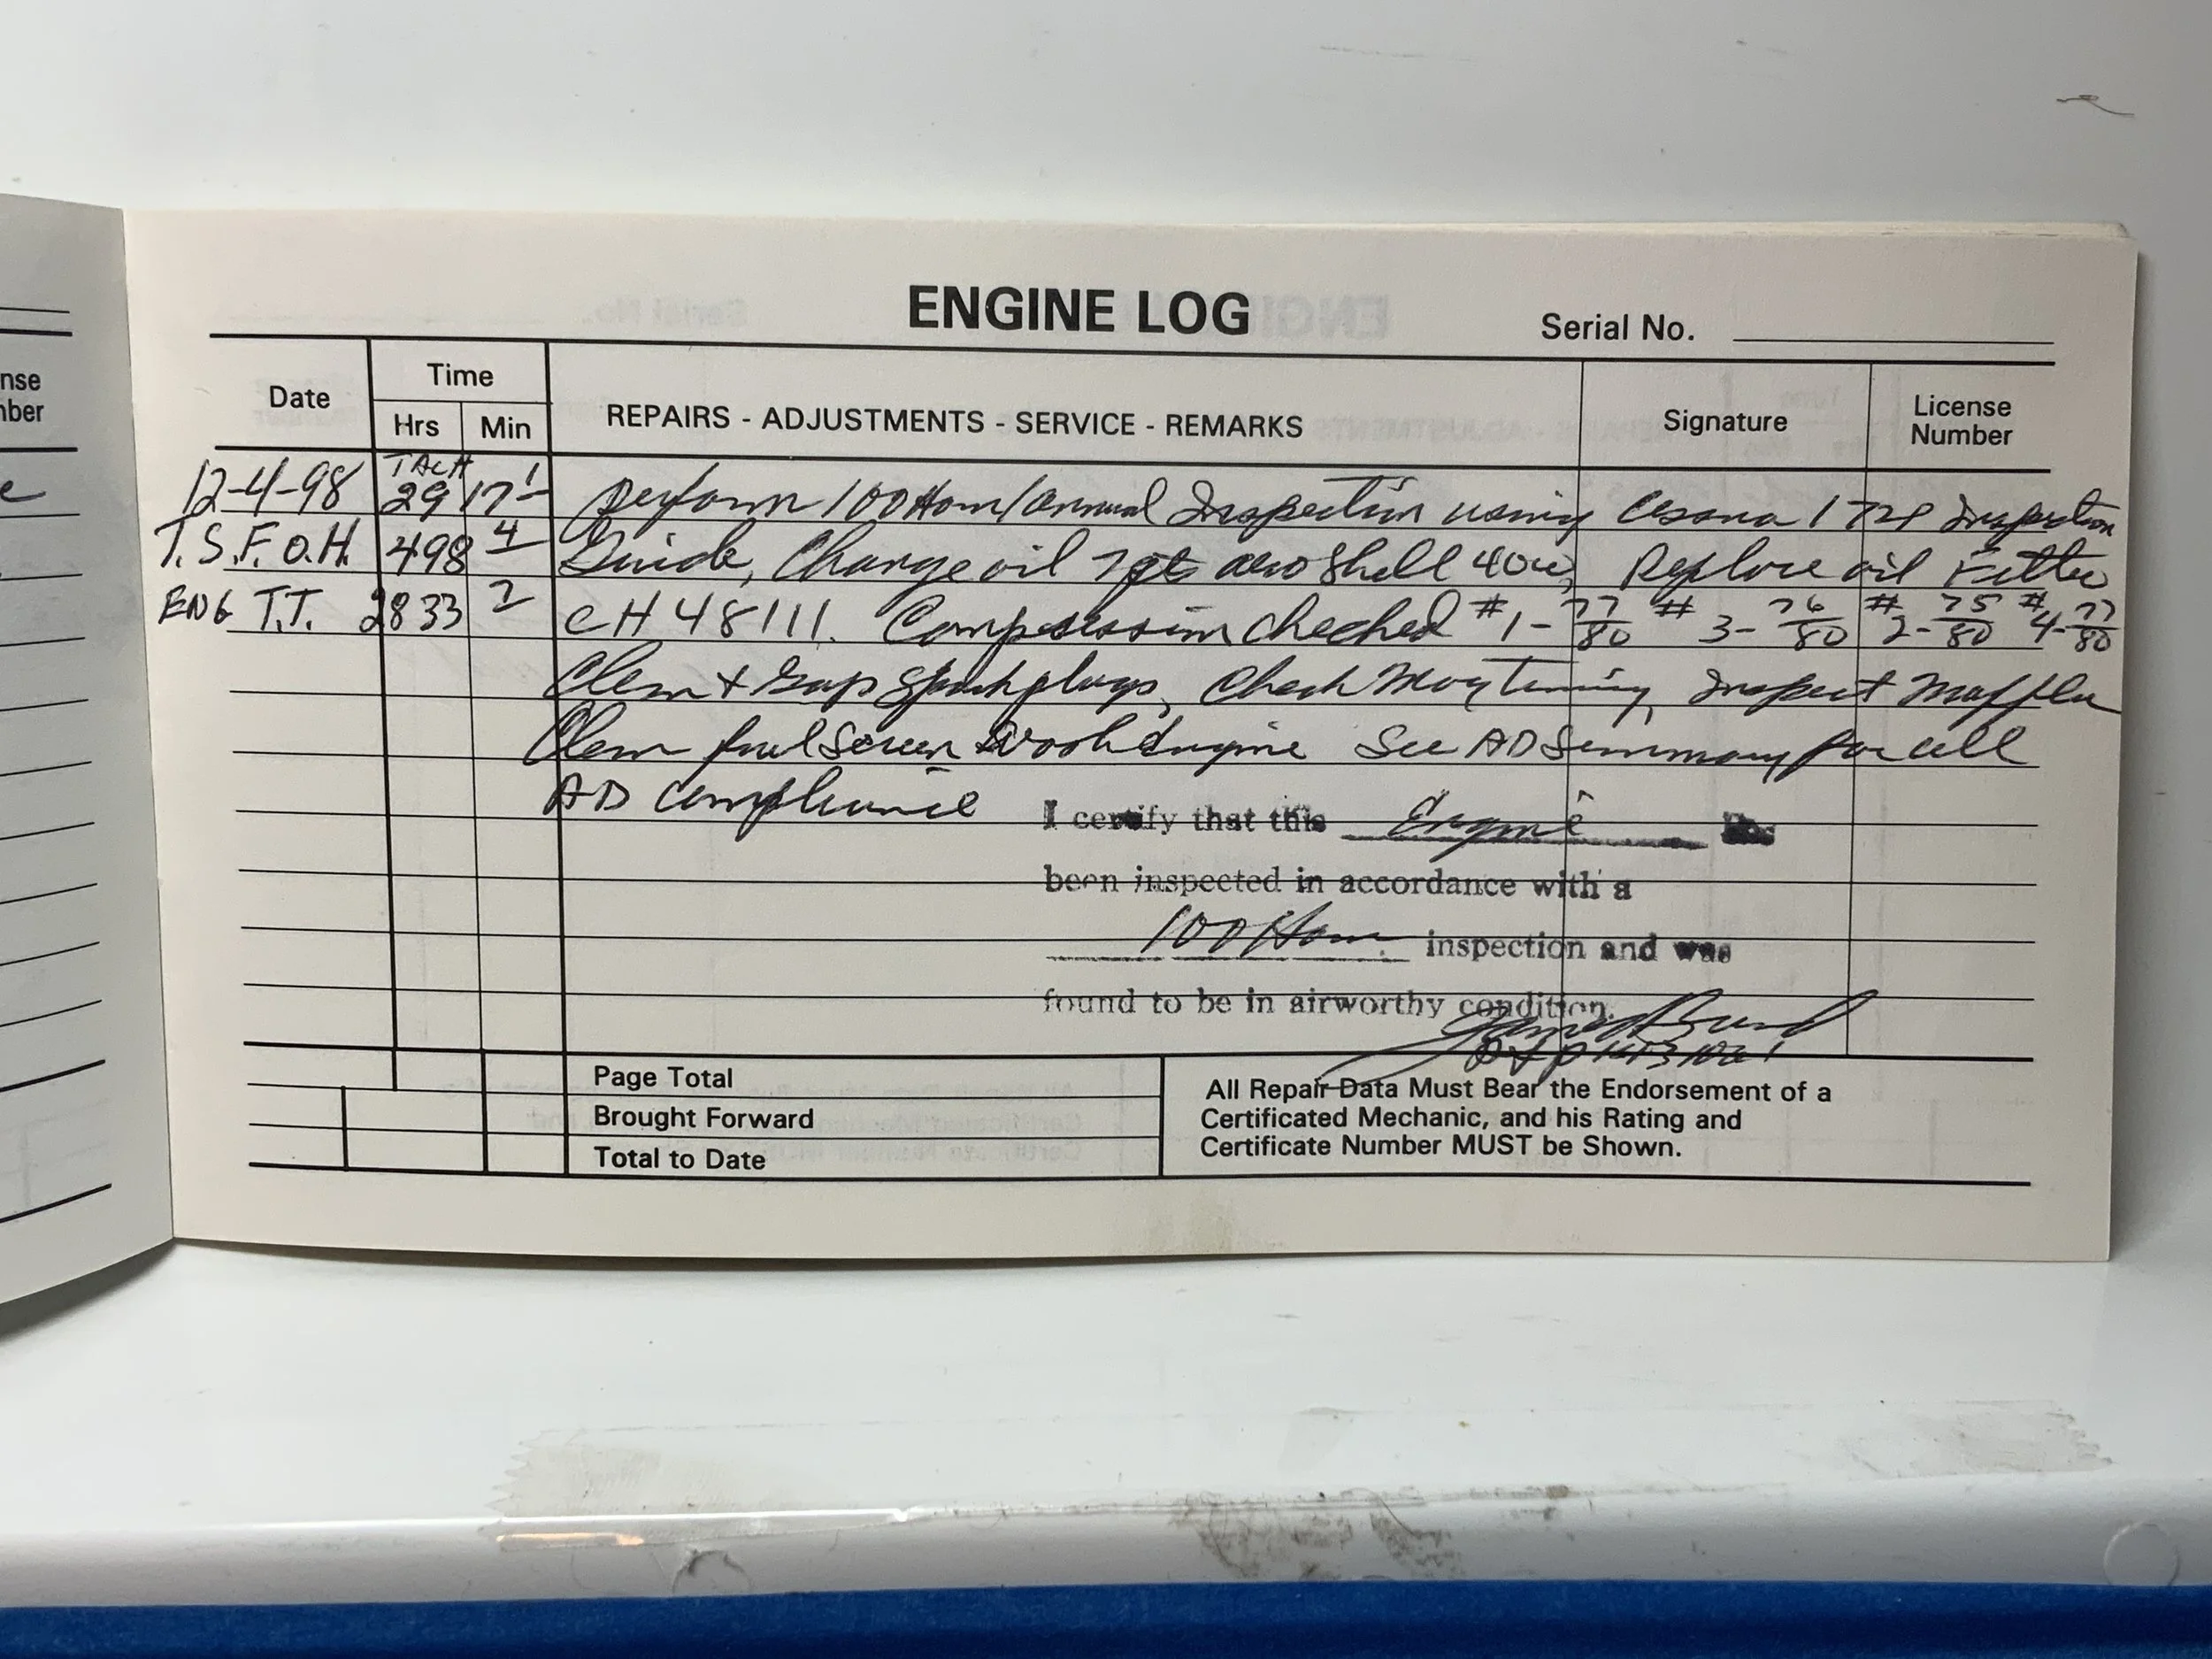 nse
nber
e
ENGINE LOG
Serial No.
Date
Time
Hrs Min
REPAIRS - ADJUSTMENTS - SERVICE - REMARKS
Signature
License
Number
TACH
12-4-98 2917 1 Perform 100 Hour/Annual Inspection using Cessna 172P Inspection
T.S.F.O.H. 498 4 Guide, Change oil 7qts aero shell 40w, Replace oil Filter
ENG T.T. 2833 2 CH48111. Compression checked #1-77/80 #3-76/80 #2-75/80 #4-77/80
Clean + Gap Spark plugs, Check Mag Timing, Inspect Muffler
Clean fuel Screen Wash Engine See AD Summary for all
AD compliance
I certify that this Engine has
been inspected in accordance with a
100 Hour inspection and was
found to be in airworthy condition.
Page Total
Brought Forward
Total to Date
All Repair Data Must Bear the Endorsement of a
Certificated Mechanic, and his Rating and
Certificate Number MUST be Shown.